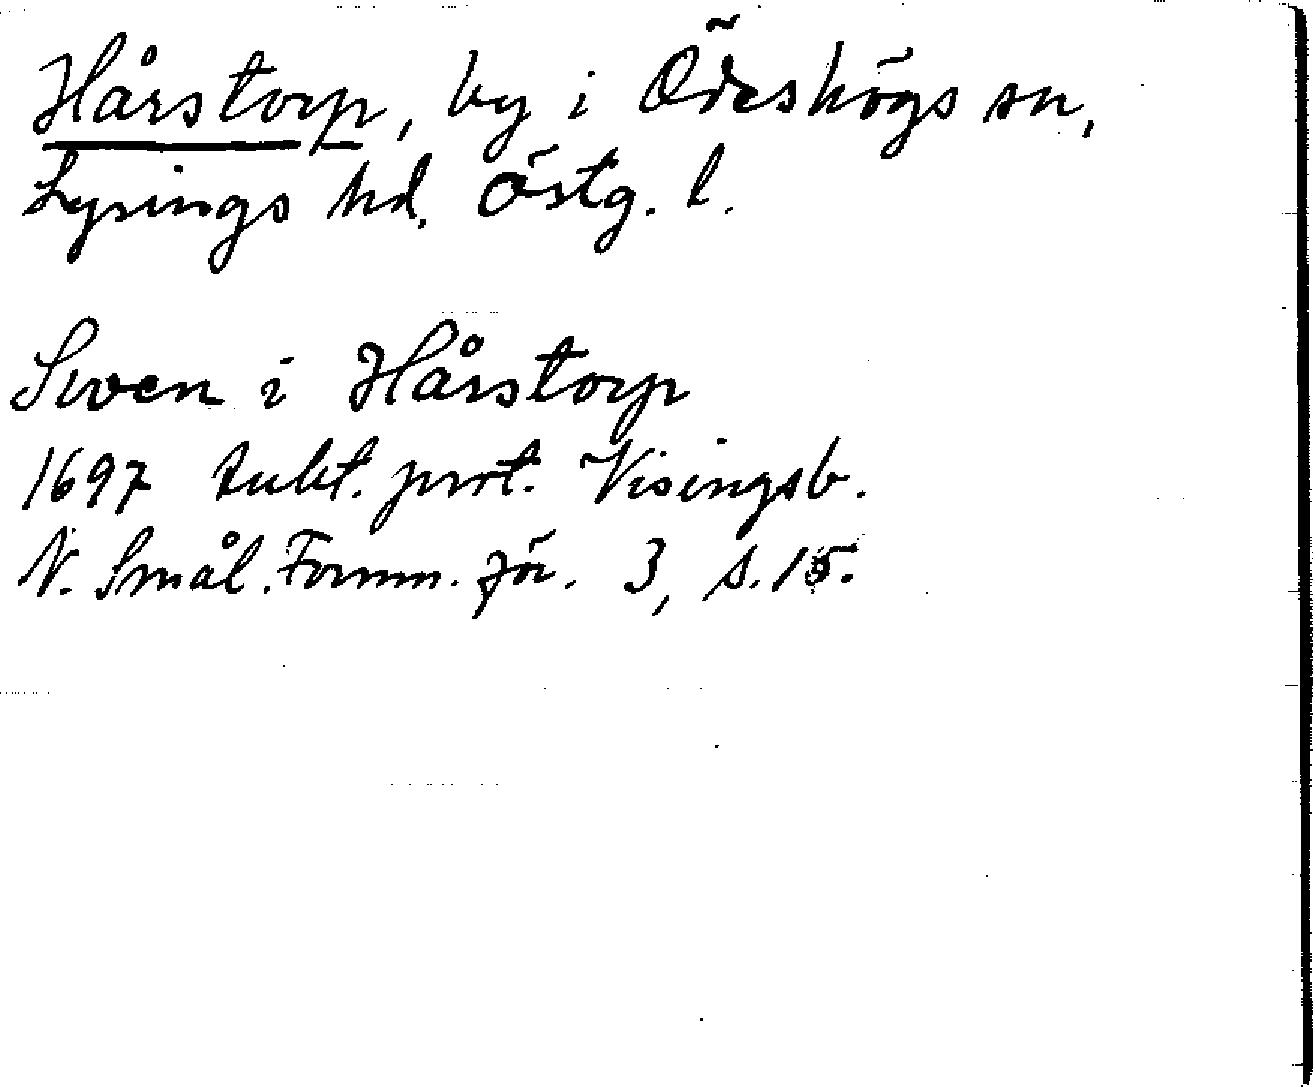 Hårstorp, by i Ödeshögs sn,
Lysings hd, Östg. l.
Sven i Hårstorp
1697 tukt. prot. Visingsb.
N. Smål. Fornm. för. 3, s. 15.